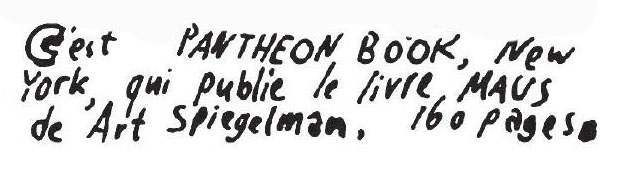 C'est PANTHEON BOOK, New
York, qui publie le livre MAUS
de Art Spiegelman, 160 pages.